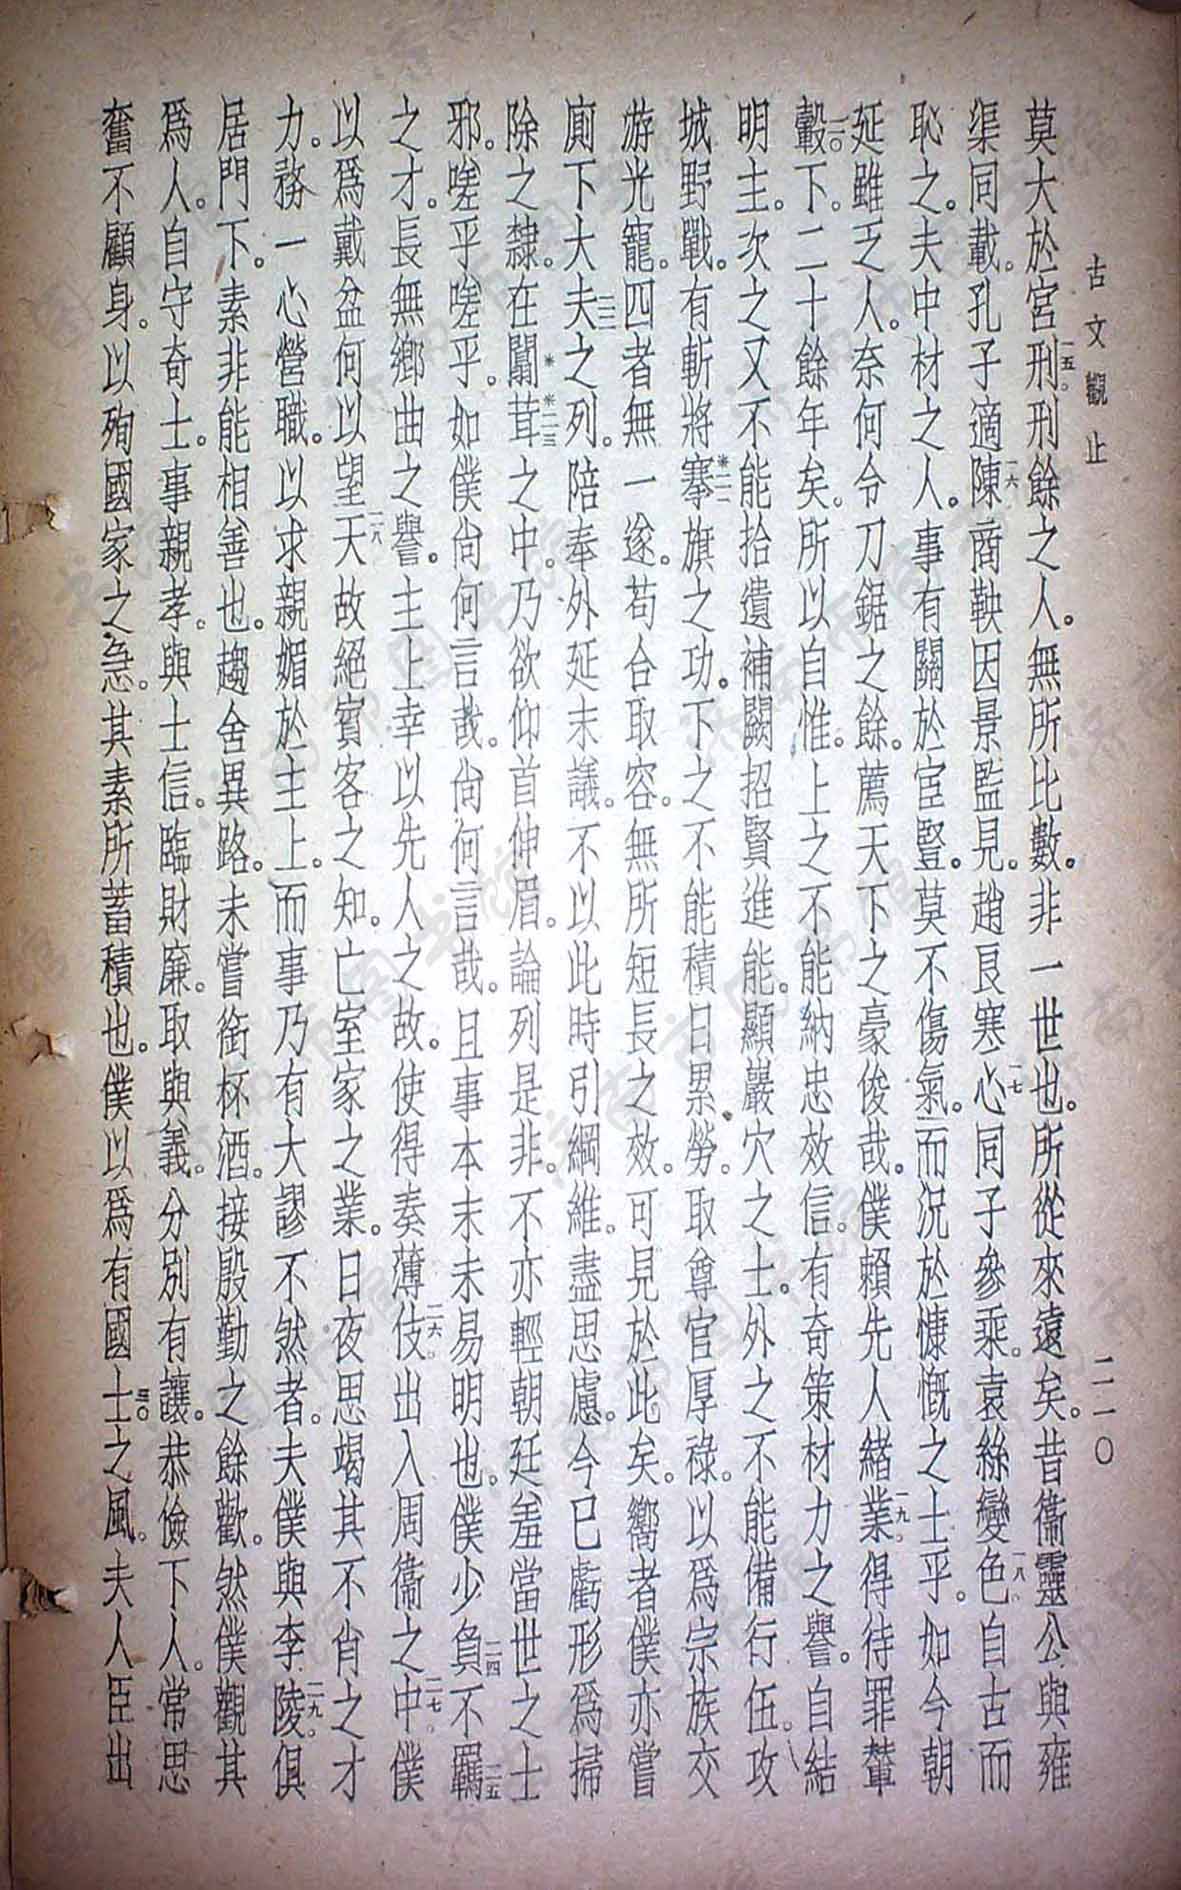 古文觀止
二一〇
莫大於宮刑一五。刑餘之人。無所比數。非一世也。所從來遠矣。昔衞靈公與雍
渠同載。孔子適陳一六商鞅因景監見。趙良寒心一七同子參乘。袁絲變色一八。自古而
恥之。夫中材之人。事有關於宦豎。莫不傷氣。而況於慷慨之士乎。如今朝
廷雖乏人。奈何令刀鋸之餘。薦天下之豪俊哉。僕賴先人緒業一九。得待罪輦
轂二〇。下。二十餘年矣。所以自惟。上之不能納忠效信。有奇策材力之譽。自結
明主。次之又不能拾遺補闕招賢進能。顯巖穴之士。外之不能備行伍。攻
城野戰。有斬將搴※二一旗之功。下之不能積日累勞。取尊官厚祿。以爲宗族交
游光寵。四者無一遂。苟合取容。無所短長之效。可見於此矣。嚮者僕亦嘗
廁下大夫二二之列。陪奉外延末議。不以此時引綱維。盡思慮。今已虧形爲掃
除之隸。在闒※茸※二三之中。乃欲仰首伸眉。論列是非。不亦輕朝廷羞當世之士
邪。嗟乎嗟乎。如僕尙何言哉。尙何言哉。且事本末未易明也。僕少負二四不羈二五
之才。長無鄉曲之譽。主上幸以先人之故。使得奏薄伎二六。出入周衞之中二七。僕
以爲戴盆何以望天二八故絕賓客之知。亡室家之業。日夜思竭其不肖之才
力。務一心營職。以求親媚於主上。而事乃有大謬不然者。夫僕與李陵二九。俱
居門下。素非能相善也。趨舍異路。未嘗銜杯酒。接殷勤之餘歡。然僕觀其
爲人。自守奇士。事親孝。與士信。臨財廉。取與義。分別有讓。恭儉下人。常思
奮不顧身。以殉國家之急。其素所蓄積也。僕以爲有國士三〇之風。夫人臣出